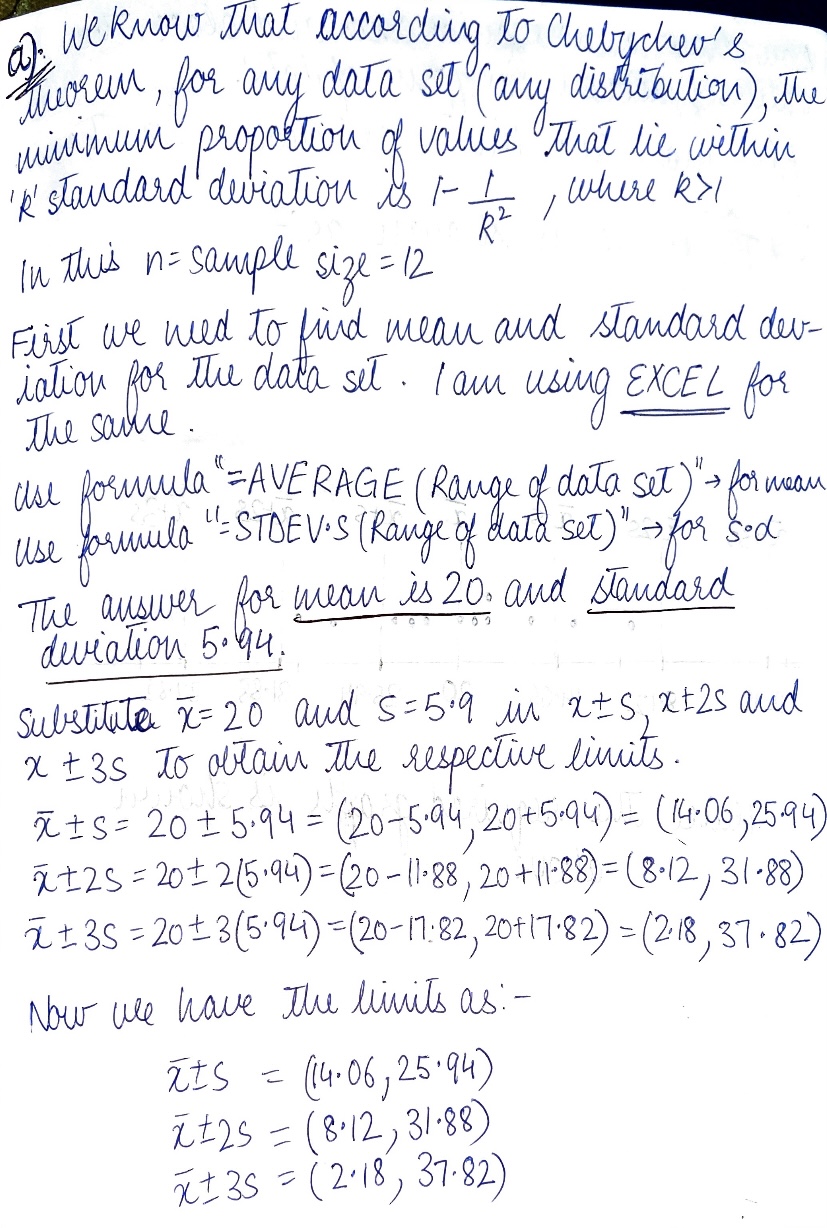 a). We know that according to Chebychev's
theorem, for any data set (any distribution), the
minimum proportion of values that lie within
'k' standard deviation is 1 - 1/k², where k>1
In this n = sample size = 12
First we need to find mean and standard dev-
iation for the data set. I am using EXCEL for
the same.
Use formula "=AVERAGE (Range of data set)" → for mean
Use formula "=STDEV.S (Range of data set)" → for s.d
The answer for mean is 20. and standard
deviation 5.94.
Substitute x = 20 and S = 5.9 in x±S, x±2S and
x ± 3S to obtain the respective limits.
x̄ ± S = 20 ± 5.94 = (20-5.94, 20+5.94) = (14.06, 25.94)
x̄ ± 2S = 20 ± 2(5.94) = (20 - 11.88, 20 + 11.88) = (8.12, 31.88)
x̄ ± 3S = 20 ± 3(5.94) = (20 - 17.82, 20 + 17.82) = (2.18, 37.82)
Now we have the limits as:-
x̄ ± S = (14.06, 25.94)
x̄ ± 2S = (8.12, 31.88)
x̄ ± 3S = (2.18, 37.82)